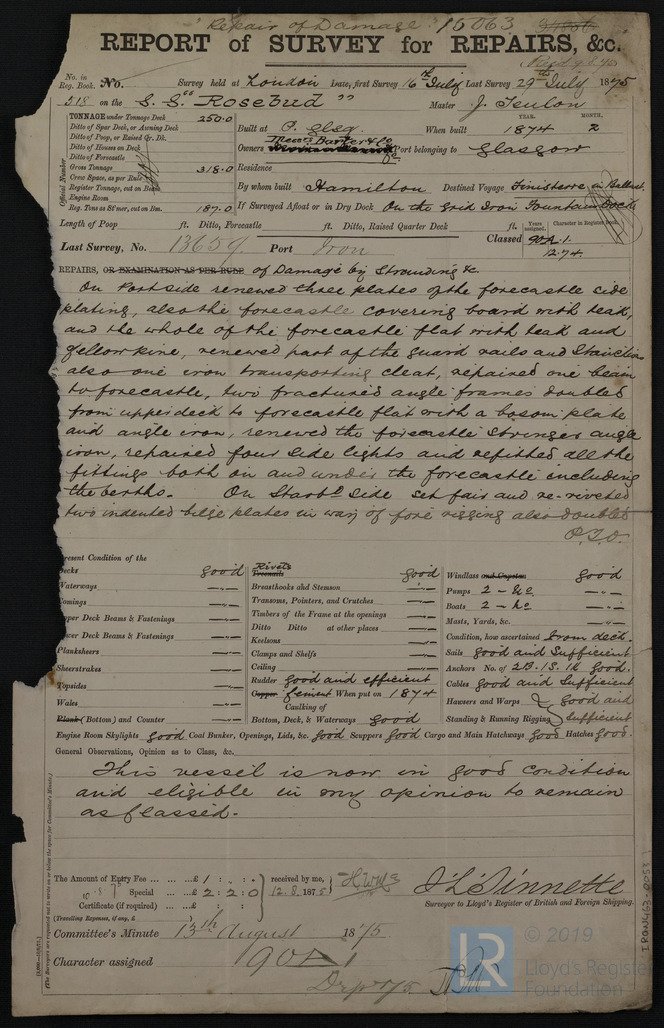 "Repair of Damage" 15063
REPORT of SURVEY for REPAIRS, &c.
No. in Reg. Book. No. Survey held at London Date, first Survey 16th July Last Survey 29th July 1875
518 on the S.S. "Rosebud" Master J. Fenton
TONNAGE under Tonnage Deck 250.0
Ditto of Spar Deck, or Awning Deck
Ditto of Poop, or Raised Qr. Dk.
Ditto of Houses on Deck
Ditto of Forecastle
Gross Tonnage 318.0
Crew Space, as per Rule
Register Tonnage, cut on Beam
Engine Room
Reg. Tons as St'mer, cut on Bm. 187.0
Official Number
Built at P. Glsg. When built YEAR. 1874 MONTH. 2
Owners Messrs Barker & Co Port belonging to Glasgow
Residence Do
By whom built Hamilton Destined Voyage Finisterre in Ballast
If Surveyed Afloat or in Dry Dock On the grid Iron Fountain Dock
Length of Poop ft. Ditto, Forecastle ft. Ditto, Raised Quarter Deck ft.
Years assigned. Character in Register Book.
Last Survey, No. 13659 Port Iron Classed 90A.1.
12.74
REPAIRS, OR EXAMINATION AS PER RULE of Damage by Stranding &c.
On Port side renewed three plates of the forecastle side
plating, also the forecastle covering board with teak,
and the whole of the forecastle flat with teak and
yellow pine, renewed part of the guard rails and Stanchions
also one iron transporting cleat, repaired one beam
to forecastle, two fractured angle frames doubled
from upper deck to forecastle flat with a bosom plate
and angle iron, renewed the forecastle Stringer angle
iron, repaired four side lights and refitted all the
fittings both on and under the forecastle including
the berths. On Starbd side set fair and re-riveted
two indented bilge plates in way of fore rigging also doubled
P.T.O.
Present Condition of the
Decks good
Waterways —"—
Comings —"—
Upper Deck Beams & Fastenings —"—
Lower Deck Beams & Fastenings —"—
Planksheers —"—
Sheerstrakes —"—
Topsides —"—
Wales —"—
Plank (Bottom) and Counter —"—
Rivets
Treenails good
Breasthooks and Stemson —"—
Transoms, Pointers, and Crutches —"—
Timbers of the Frame at the openings —"—
Ditto Ditto at other places —"—
Keelsons —"—
Clamps and Shelfs —"—
Ceiling —"—
Rudder good and efficient
Copper Cement When put on 1874
Caulking of
Bottom, Deck, & Waterways good
Windlass and Capstan good
Pumps 2 - No —"—
Boats 2 - No —"—
Masts, Yards, &c. —"—
Condition, how ascertained from deck.
Sails good and Sufficient
Anchors No. of 2B. 1S. 1K good.
Cables good and Sufficient
Hawsers and Warps good and
Standing & Running Rigging Sufficient
Engine Room Skylights good Coal Bunker, Openings, Lids, &c. good Scuppers good Cargo and Main Hatchways good Hatches good.
General Observations, Opinion as to Class, &c.
This vessel is now in good condition
and eligible in my opinion to remain
as classed.
The Amount of Entry Fee ... £ 1 : - : -
Special ... £ 2 : 2 : 0
Certificate (if required) ... £ : :
(Travelling Expenses, if any, £
10.8.75
received by me,
12.8.1875
J. L. Sinnette
Surveyor to Lloyd's Register of British and Foreign Shipping.
Committee's Minute 13th August 1875.
Character assigned 90A 1
(The Surveyors are requested not to write on or below the space for Committee's Minute.)
IRON463-0053
LR
© 2019
Lloyd's Register
Foundation